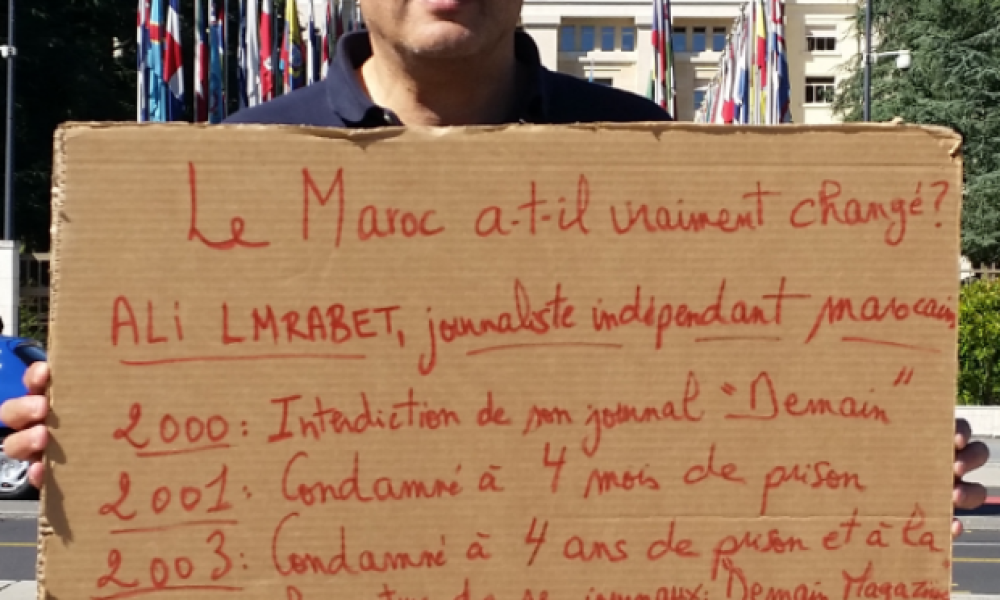 Le Maroc a-t-il vraiment changé?
ALi LMRABET, journaliste indépendant marocain
2000: Interdiction de son journal "Demain"
2001: Condamné à 4 mois de prison
2003: Condamné à 4 ans de prison et à la
journaux: "Demain Magazine